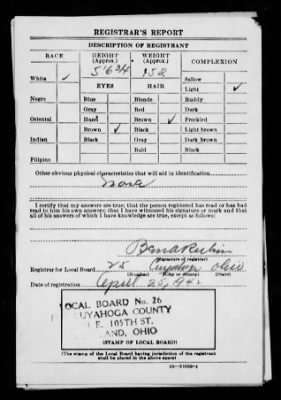 REGISTRAR'S REPORT
DESCRIPTION OF REGISTRANT
RACE HEIGHT (Approx.) WEIGHT (Approx.) COMPLEXION
5'6 3/4 152
White ✓ Sallow
EYES HAIR Light ✓
Negro Blue Blonde Ruddy
Gray Red Dark
Oriental Hazel Brown ✓ Freckled
Brown ✓ Black Light brown
Indian Black Gray Dark brown
Bald Black
Filipino
Other obvious physical characteristics that will aid in identification
None
I certify that my answers are true; that the person registered has read or has had
read to him his own answers; that I have witnessed his signature or mark and that
all of his answers of which I have knowledge are true, except as follows:
(Signature of registrar)
Registrar for Local Board 25 Cuyahoga Ohio
(Number) (City or county) (State)
Date of registration April 26, 42
OCAL BOARD No. 26
UYAHOGA COUNTY
E. 105TH ST.
AND, OHIO
(STAMP OF LOCAL BOARD)
(The stamp of the Local Board having jurisdiction of the registrant
shall be placed in the above space)